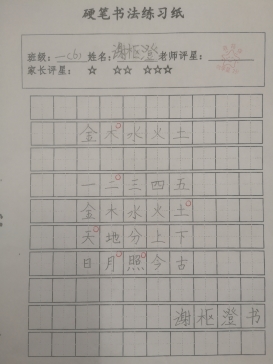 硬笔书法练习纸
班级：一(6) 姓名：谢枢澄 老师评星：
家长评星： ☆ ☆☆ ☆☆☆
金木水火土
一二三四五
金木水火土
天地分上下
日月照今古
谢枢澄书